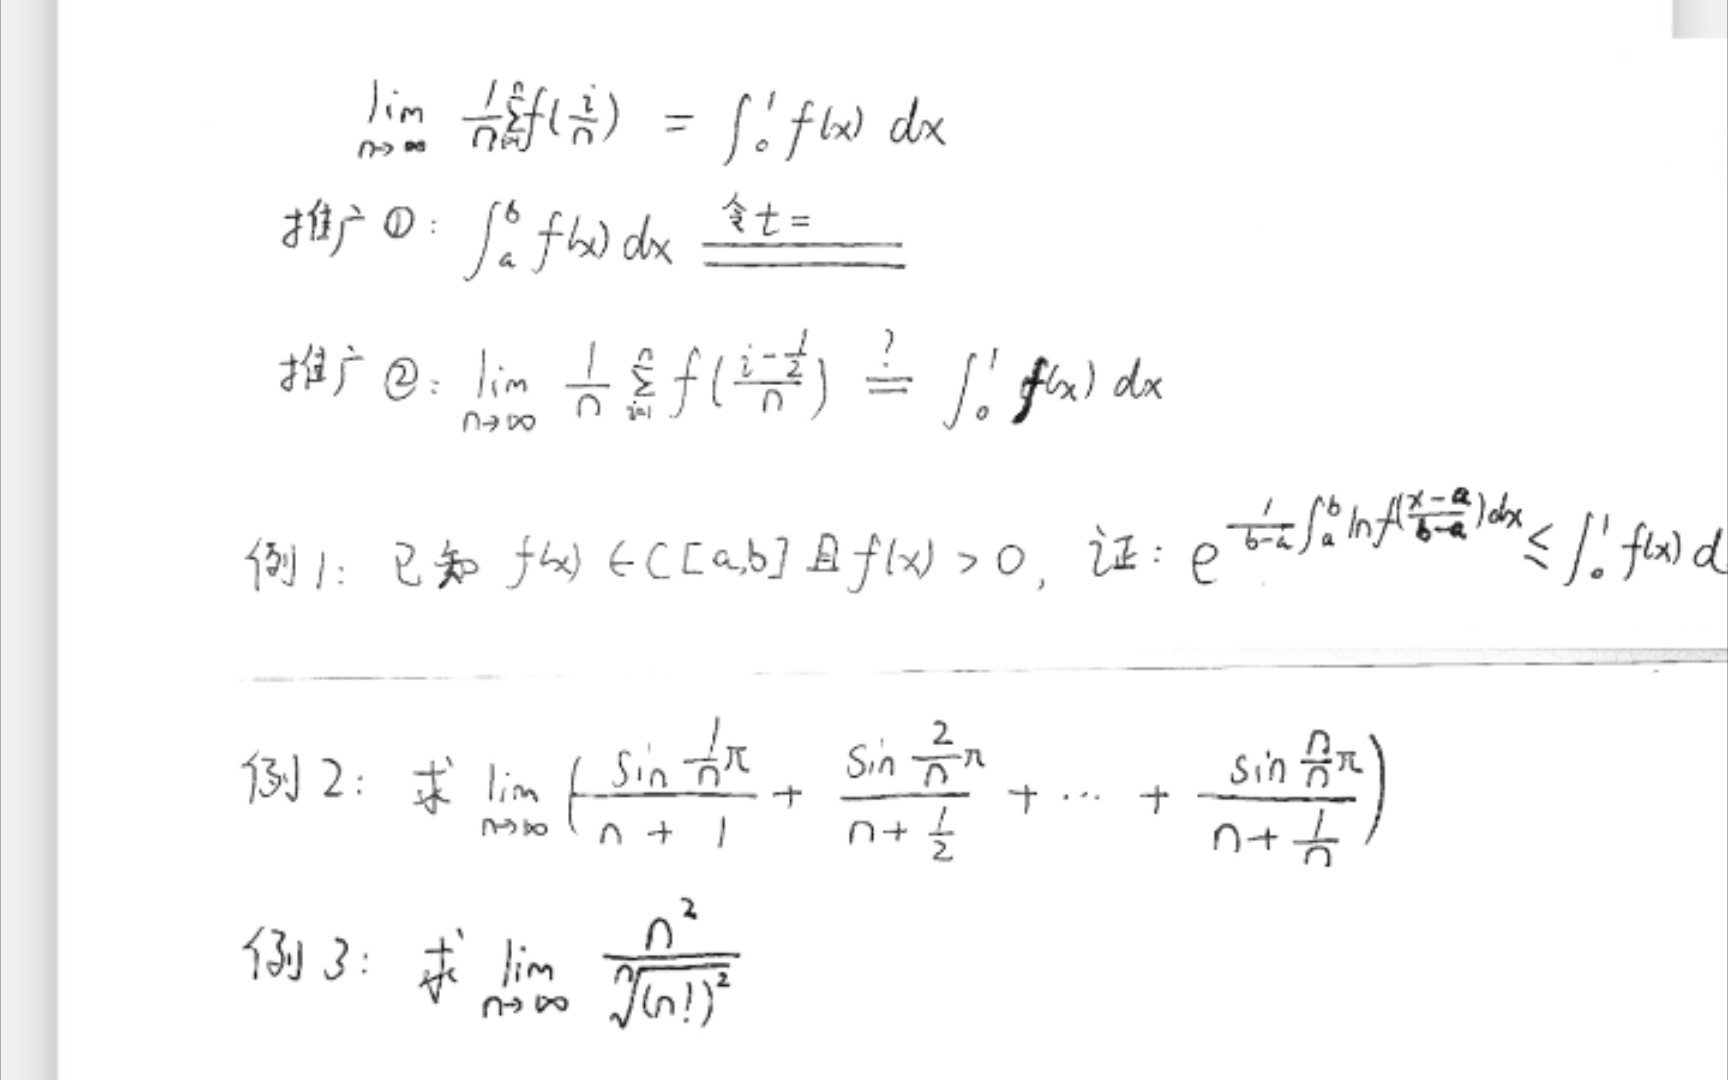 lim_{n→∞} 1/n ∑_{i=1}^{n} f(i/n) = ∫_0^1 f(x) dx
推广①: ∫_a^b f(x) dx 令t=
推广②: lim_{n→∞} 1/n ∑_{i=1}^{n} f((i-1/2)/n) ?= ∫_0^1 f(x) dx
例1: 已知 f(x) ∈ C[a,b] 且 f(x) > 0, 证: e^{1/(b-a) ∫_a^b ln f((x-a)/(b-a)) dx} ≤ ∫_0^1 f(x) d
例2: 求 lim_{n→∞} ( (sin 1/n π)/(n+1) + (sin 2/n π)/(n+1/2) + ⋯ + (sin n/n π)/(n+1/n) )
例3: 求 lim_{n→∞} n²/ⁿ√((n!)²)